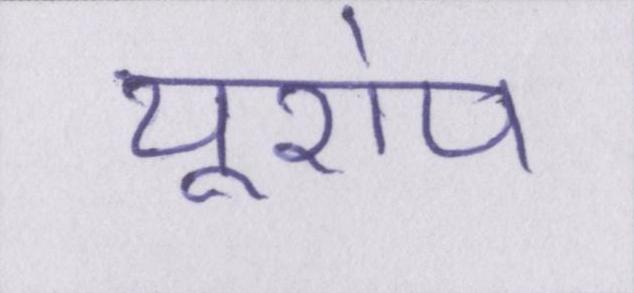 यूरोप